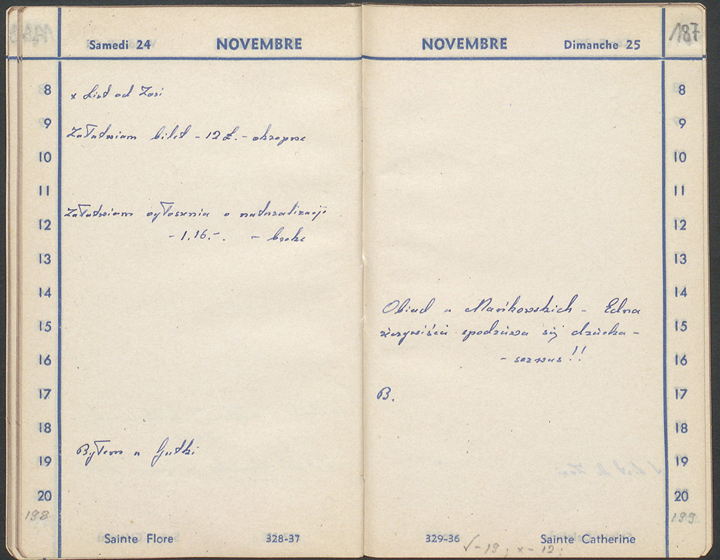 Samedi 24 NOVEMBRE
8
x List od Zosi
9
Załatwiam bilet - 12 £. - okropne
10
11
Załatwiam ogłoszenia o naturalizacji
12
- 1.16.-. -
13
14
15
16
17
18
Byłem u Gutki
19
20
198
Sainte Flore 328-37
NOVEMBRE Dimanche 25
187
8
9
10
11
12
13
14
Obiad u Mańkowskich - Edna
15
rzeczywiście spodziewa się dziecka -
16
- serwus !!
17
B.
18
19
20
199
329-36 Sainte Catherine
√-19; x-12;